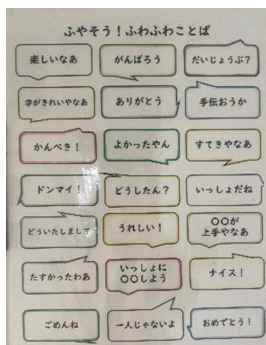 ふやそう！ふわふわことば
楽しいなあ
がんばろう
だいじょうぶ？
字がきれいやなあ
ありがとう
手伝おうか
かんぺき！
よかったやん
すてきやなあ
ドンマイ！
どうしたん？
いっしょだね
どういたしまして
うれしい！
〇〇が
上手やなあ
たすかったわあ
いっしょに
〇〇しよう
ナイス！
ごめんね
一人じゃないよ
おめでとう！